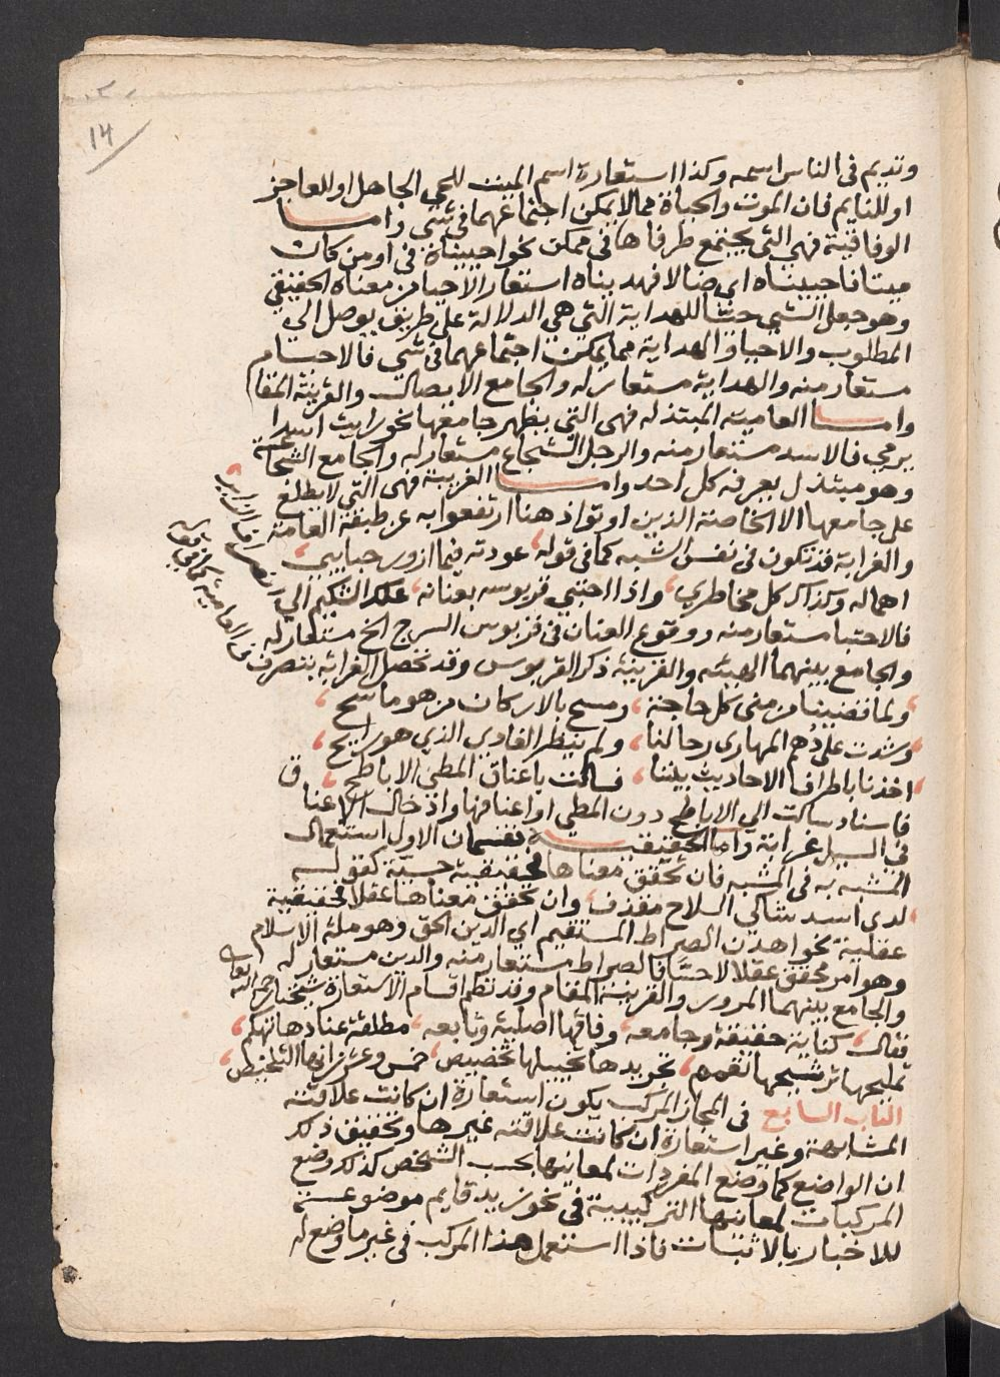 14
وتديم في الناس اسمه وكذا استعارة اسم الميت للحي الجاهل او العاجز
او للنايم فان الموت والحياة مما لا يمكن اجتماعهما في شي واما
الوفاقية فهي التي يجتمع طرفاها في ممكن نحو احييناه في او من كان
ميتا فاحييناه اي ضالا فهديناه استعار الاحيا من معناه الحقيقي
وهو جعل الشي حيا للهداية التي هي الدلالة على طريق يوصل الي
المطلوب والاحيا والهداية مما يمكن اجتماعهما في شي فالاحيا
مستعار منه والهداية مستعار له والجامع الايصال والقرينة المقام
واما العامية المبتذله فهي التي يظهر جامعها نحو رايت اسدا
يرمي فالاسد مستعار منه والرجل الشجاع مستعار له والجامع الشجاعة
وهو مبتذل يعرفه كل احد واما الغريبة فهي التي لا يطلع
على جامعها الا الخاصة الذين ارتفعوا به عن طبقة العامة
والغرابة قد تكون في نفس الشبه كما في قوله عودته فيما ازور حبايبي
اهماله وكذاك كل مخاطري واذا احتبي قربوسه بعنانه علك الشكيم الي انصراف الزاير
فالاحتبا مستعار منه ووقوع العنان في قربوس السرج الخ مستعار له
والجامع بينهما الهيئه والقرينة ذكر القربوس وقد تحصل الغرابه بتصرف في العامية كما في قوله
ولما قضينا من منى كل حاجة ومسح بالاركان من هو ماسح
وشدت على دهم المهاري رحالنا ولم ينظر الغادي الذي هو رايح
اخذنا باطراف الاحاديث بيننا فسالت باعناق المطي الاباطح
فاسناد سالت الى الاباطح دون المطي او اعناقها واذ خال الاعناق
في السيل غرابة واما الحقيقية فقسمان الاول استعمال
المشبه به في المشبه فان تحقق معناها فحقيقية حسية كقوله
لدى اسد شاكي السلاح مقذف وان تحقق معناها عقلا فحقيقية
عقلية نحو اهدنا الصراط المستقيم اي الدين الحق وهو ملة الاسلام
وهو امر محقق عقلا لا حسا فالصراط مستعار منه والدين مستعار له
والجامع بينهما المرور والقرينة المقام وقد نظم اقسام الاستعارة شيخنا
فقال كناية حقيقة وجامعه وفاقها اصلية وتابعه مطلقة عنادها تهكم
تمليحها ترشيحها تجريدها تخييلها تخصيص خمس وعشر
الباب السابع في المجاز المركب يكون استعارة ان كانت علاقته
المشابهة وغير استعارة ان كانت علاقته غيرها وتحقيق ذلك
ان الواضع كما وضع المفردات لمعانيها بحسب الشخص كذلك وضع
المركبات لمعانيها التركيبية في نحو زيد قايم موضوعة
للاخبار بالاثبات فاذا استعمل هذا المركب في غير ما وضع له